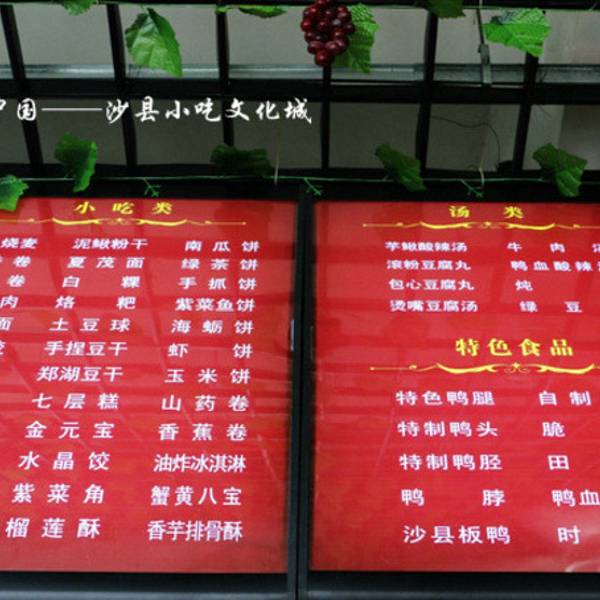 中国——沙县小吃文化城
小吃类
烧麦 泥鳅粉干 南瓜饼
卷 夏茂面 绿茶饼
卷 白粿 手抓饼
肉 烙粑 紫菜鱼饼
面 土豆球 海蛎饼
手捏豆干 虾饼
郑湖豆干 玉米饼
七层糕 山药卷
金元宝 香蕉卷
水晶饺 油炸冰淇淋
紫菜角 蟹黄八宝
榴莲酥 香芋排骨酥
汤类
芋鳅酸辣汤 牛肉
滚粉豆腐丸 鸭血酸辣
包心豆腐丸 炖
烫嘴豆腐汤 绿豆
特色食品
特色鸭腿 自制
特制鸭头 脆
特制鸭胫 田
鸭脖 鸭血
沙县板鸭 时